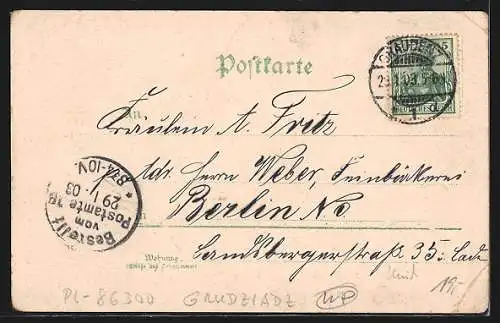 Postkarte
GRAUDENZ
An
Fräulein A. Fritz
adr. Herrn Weber, Feinbäckerei
Berlin No
Landsbergerstraße 35: Lad
Wohnung
(Straße und Hausnummer)
Bestellt
vom
Postamte
29/1 03
8¼-10V.
PL-86300 GRUDZIĄDZ
19,-